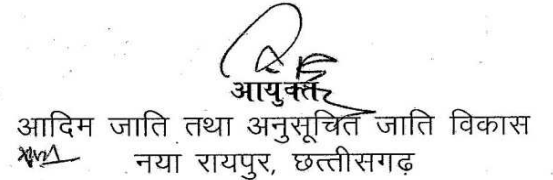 आयुक्त
आदिम जाति तथा अनुसूचित जाति विकास
नया रायपुर, छत्तीसगढ़